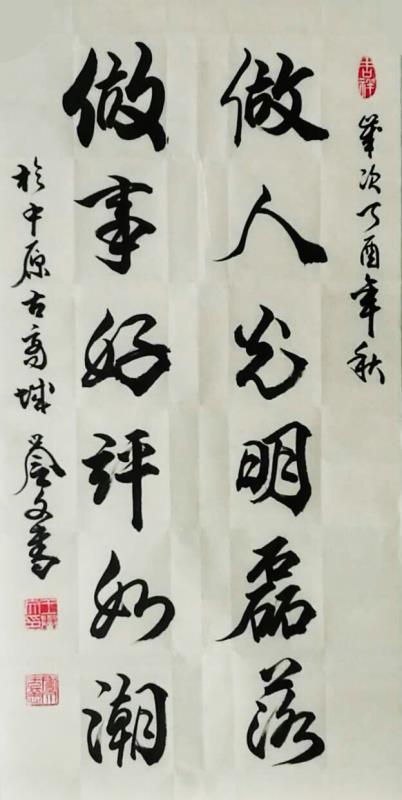 吉祥
歲次丁酉年秋
做人光明磊落
做事好評如潮
於中原古商城 文書